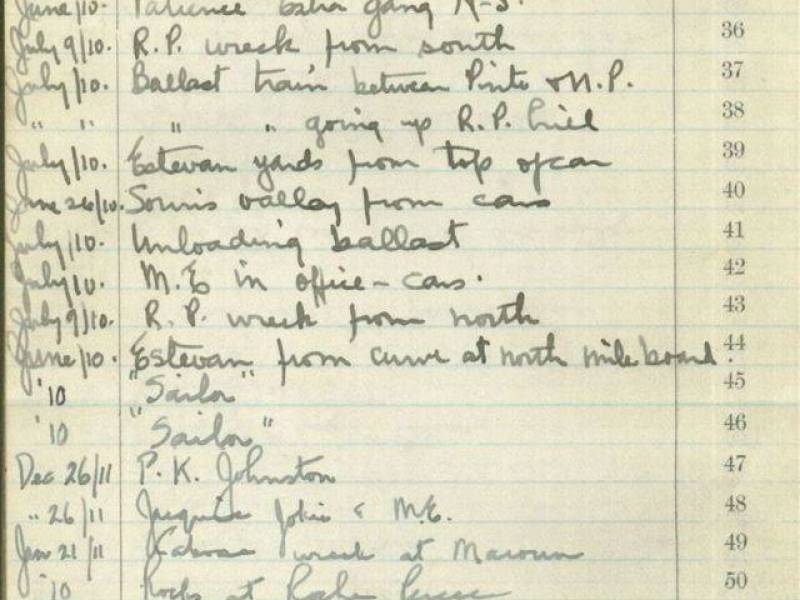 June/10. Patience Extra gang N-S.
July 9/10. R.P. wreck from south 36
July/10. Ballast train between Pinto & N.P. 37
" " " " going up R.P. hill 38
July/10. Estevan yards from top of car 39
June 26/10. Souris valley from cars 40
July/10. Unloading ballast 41
July 10. M.E in office - cars. 42
July 9/10. R.P. wreck from north 43
June/10. Estevan from curve at north mile board. 44
'10 "Sailor" 45
'10 "Sailor" 46
Dec 26/11 P.K. Johnston 47
" 26/11 & M.E. 48
Jan 21/11 wreck at 49
'10 Rocks at 50